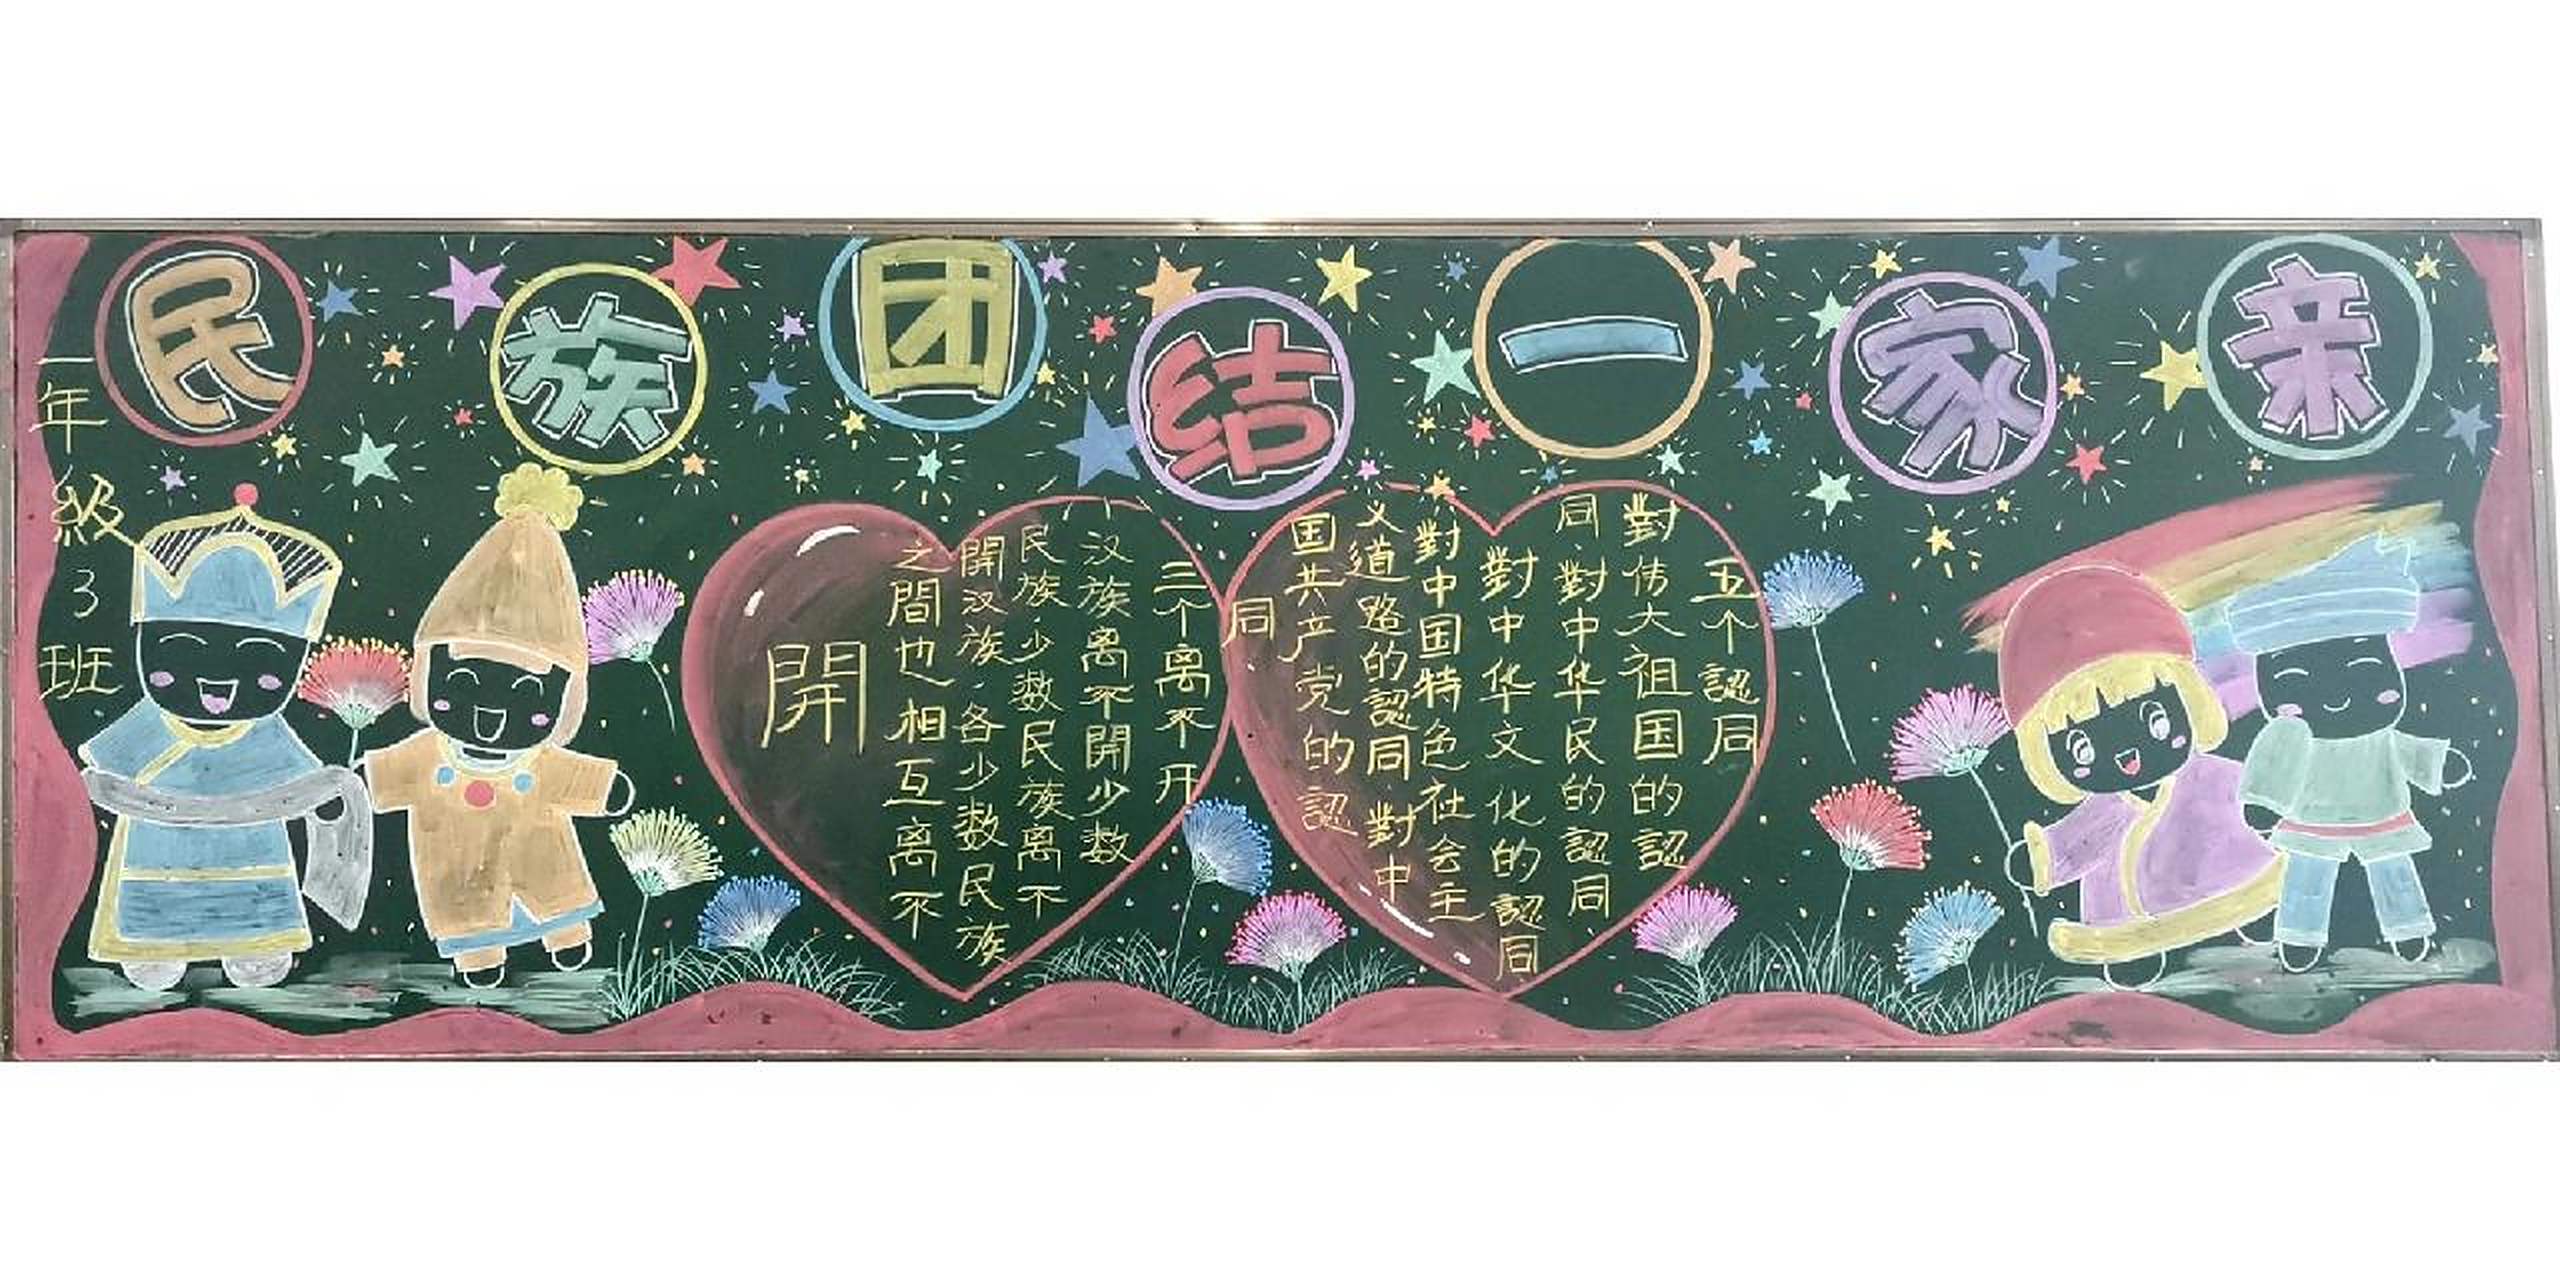 民族团结一家亲
一年級3班
五个認同
對伟大祖国的認
同、對中华民的認同、
對中华文化的認同
對中国特色社会主
义道路的認同對中
国共产党的認
同
三个离不开
汉族离不開少数
民族、少数民族离不
開汉族、各少数民族
之間也相互离不
開